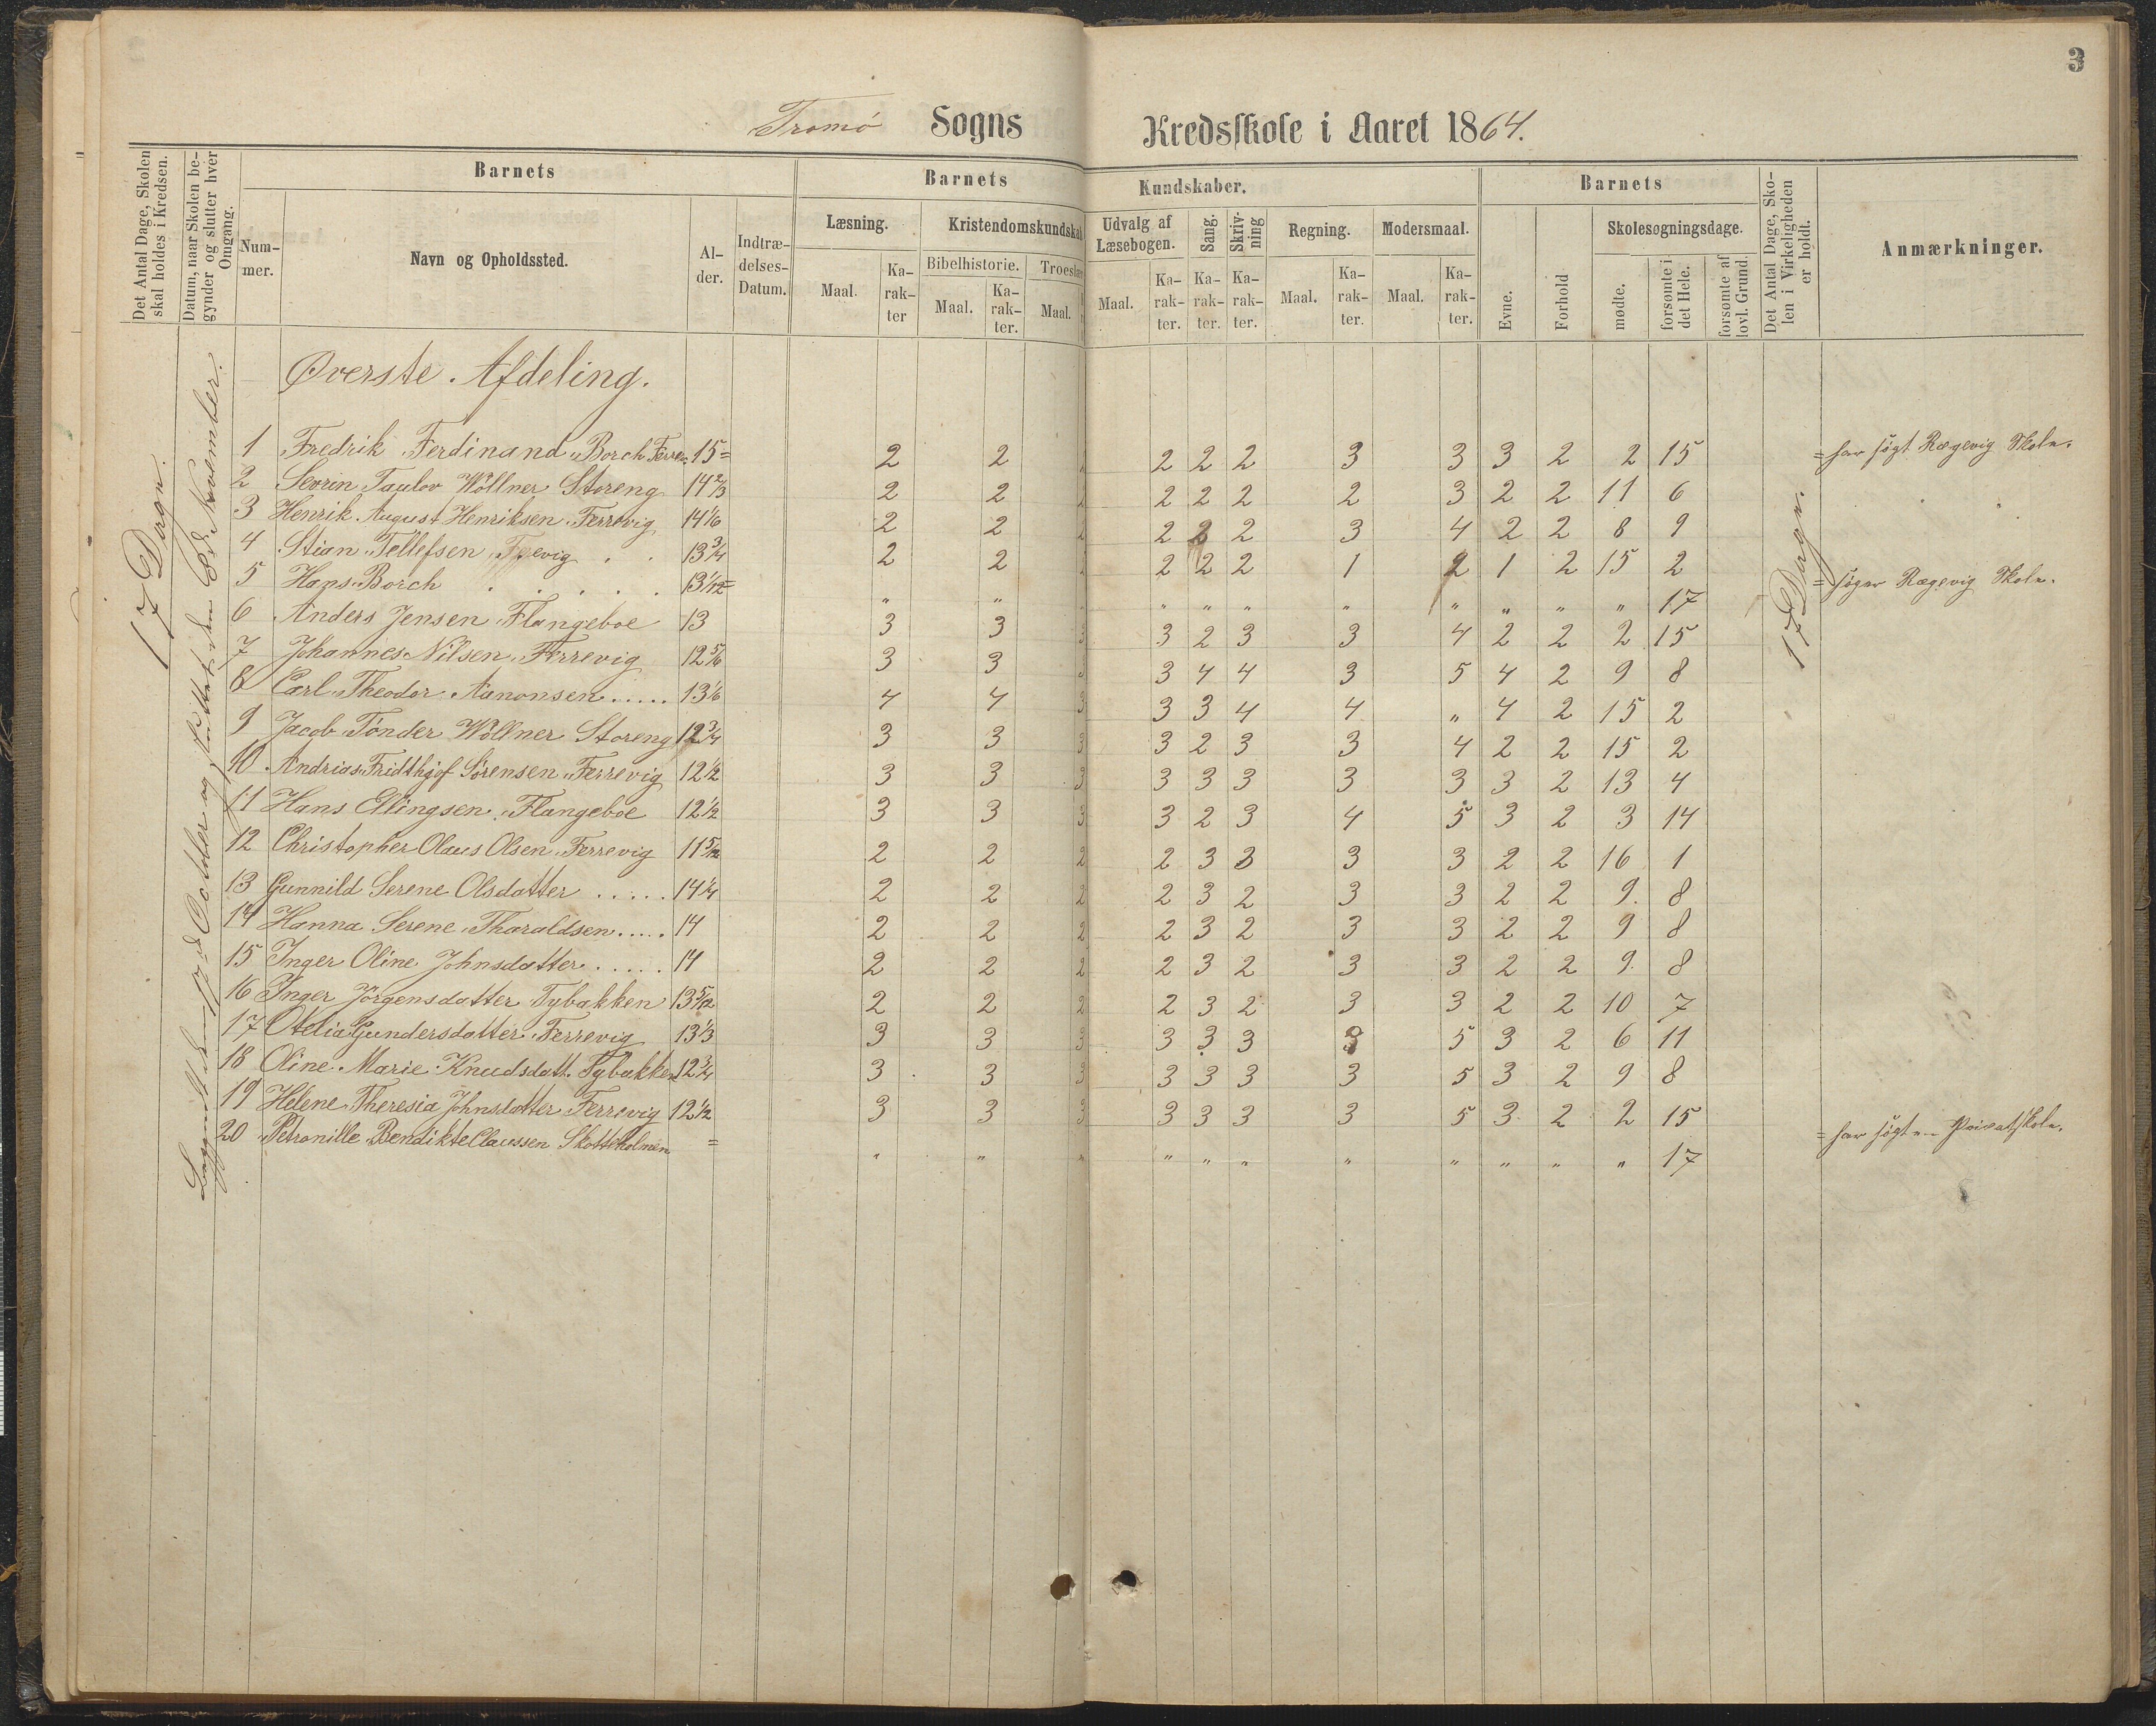 3
Tromø Sogns Kredsskole i Aaret 1864.
Det Antal Dage, Skolen skal holdes i Kredsen.
Datum, naar Skolen begynder og slutter hver Omgang.
Barnets
Nummer.
Navn og Opholdssted.
Alder.
Indtrædelses-Datum.
Barnets Kundskaber.
Læsning.
Maal. Karakter
Kristendomskundskab
Bibelhistorie. Troeslær
Maal. Karakter. Maal.
Udvalg af Læsebogen.
Maal. Karakter.
Sang. Karakter.
Skrivning Karakter.
Regning.
Maal. Karakter.
Modersmaal.
Maal. Karakter.
Barnets
Evne. Forhold
Skolesøgningsdage.
mødte. forsømte i det Hele. forsømte af lovl. Grund.
Det Antal Dage, Skolen i Virkeligheden er holdt.
Anmærkninger.
17 Dage.
Begyndt den 17de Octbber og sluttet den 8de November.
Øverste Afdeling.
1 Fredrik Ferdinand Borch Ferrev. 15= 2 2 2 2 2 2 3 3 3 2 2 15 = har søgt Rægevig Skole.
2 Sevrin Taulov Wöllner Storeng 14 2/3 2 2 2 2 2 2 2 3 2 2 11 6
3 Henrik August Henriksen Ferrevig 14 1/6 2 2 2 2 2 2 3 4 2 2 8 9
4 Stian Tellefsen Færvig . . 13 3/4 2 2 2 2 2 2 1 2 1 2 15 2
5 Hans Borch . . . . . 13 1/12= " " " " " " " " " " " 17 = søger Rægevig Skole.
6 Anders Jensen Flangeboe 13 3 3 3 3 2 3 3 4 2 2 2 15
7 Johannes Nilsen Ferrevig 12 5/6 3 3 3 3 4 4 3 5 4 2 9 8
8 Carl Theodor Aanonsen ..... 13 1/6 4 4 3 3 3 4 4 " 4 2 15 2
9 Jacob Tönder Wöllner Storeng 12 3/4 3 3 3 3 2 3 3 4 2 2 15 2
10 Andrias Fridthjof Sörensen Ferrevig 12 1/2 3 3 3 3 3 3 3 3 3 2 13 4
11 Hans Ellingsen Flangeboe 12 1/2 3 3 3 3 2 3 4 5 3 2 3 14
12 Christopher Olaus Olsen Ferrevig 11 5/12 2 2 2 2 3 3 3 3 2 2 16 1
13 Gunnild Serene Olsdatter ..... 14 1/4 2 2 2 2 3 2 3 3 2 2 9. 8
14 Hanna Serene Tharaldsen ..... 14 2 2 2 2 3 2 3 3 2 2 9 8
15 Inger Oline Johnsdatter ..... 14 2 2 2 2 3 2 3 3 2 2 9. 8
16 Inger Jörgensdatter Tybakken 13 5/12 2 2 2 2 3 2 3 3 2 2 10 7
17 Otelia Gundersdatter Ferrevig 13 1/3 3 3 3 3 3 3 3 5 3 2 6 11
18 Oline Marie Knudsdatt. Tybakken 12 3/4 3 3 3 3 3 3 3 5 3 2 9 8
19 Helene Theresia Johnsdatter Ferrevig 12 1/2 3 3 3 3 3 3 3 5 3 2 2 15
20 Petronille Bendikte Claussen Skotteholmen = " " " " " " " " " " " 17 = har søgt en Privatskole.
17 Dage.